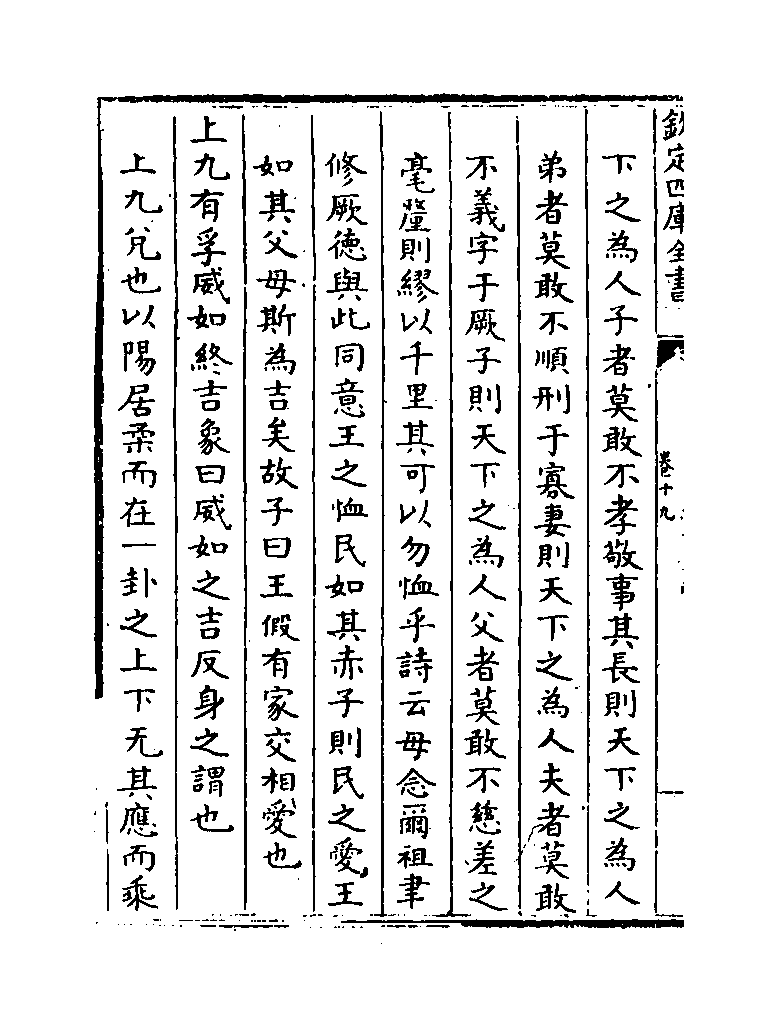 欽定四庫全書
卷十九
下之為人子者莫敢不孝敬事其長則天下之為人
弟者莫敢不順刑于寡妻則天下之為人夫者莫敢
不義字于厥子則天下之為人父者莫敢不慈差之
毫釐則繆以千里其可以勿恤乎詩云毋念爾祖聿
修厥德與此同意王之恤民如其赤子則民之愛王
如其父母斯為吉矣故子曰王假有家交相愛也
上九有孚威如終吉象曰威如之吉反身之謂也
上九兌也以陽居柔而在一卦之上下无其應而乘